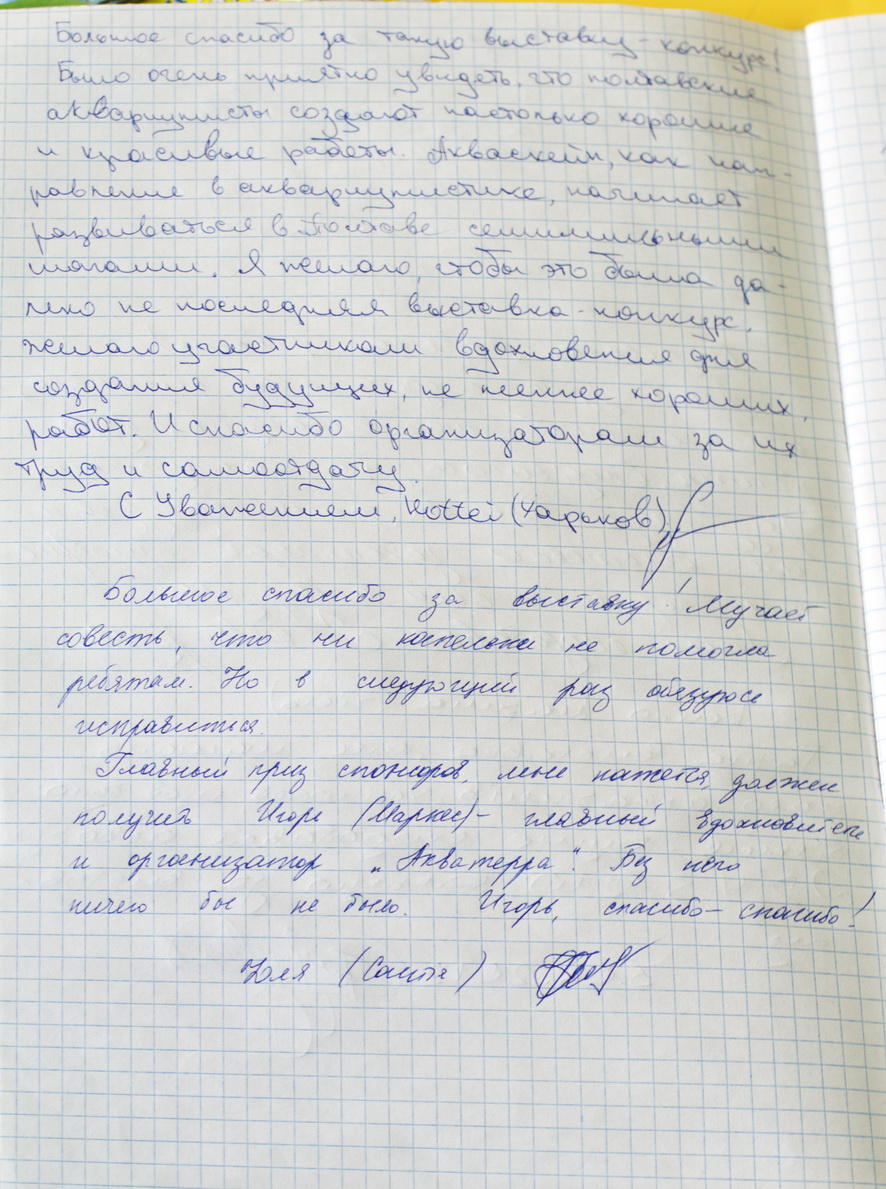 Большое спасибо за такую выставку-конкурс!
Было очень приятно увидеть, что полтавские
аквариумисты создают настолько хорошие
и красивые работы. Акваскейп, как нап-
равление в аквариумистике, начинает
развиваться в Полтаве семимильными
шагами. Я желаю, чтобы это была да-
леко не последняя выставка-конкурс.
Желаю участникам вдохновения для
создания будущих, не менее хороших,
работ. И спасибо организаторам за их
труд и самоотдачу.
С Уважением, Kottei (Харьков)
Большое спасибо за выставку! Мучает
совесть, что ни капельки не помогла
ребятам. Но в следующий раз обязуюсь
исправиться.
Главный приз спонсоров, мне кажется, должен
получить Игорь (Маркес) - главный вдохновитель
и организатор „Акватерра". Без него
ничего бы не было. Игорь, спасибо-спасибо!
Юля